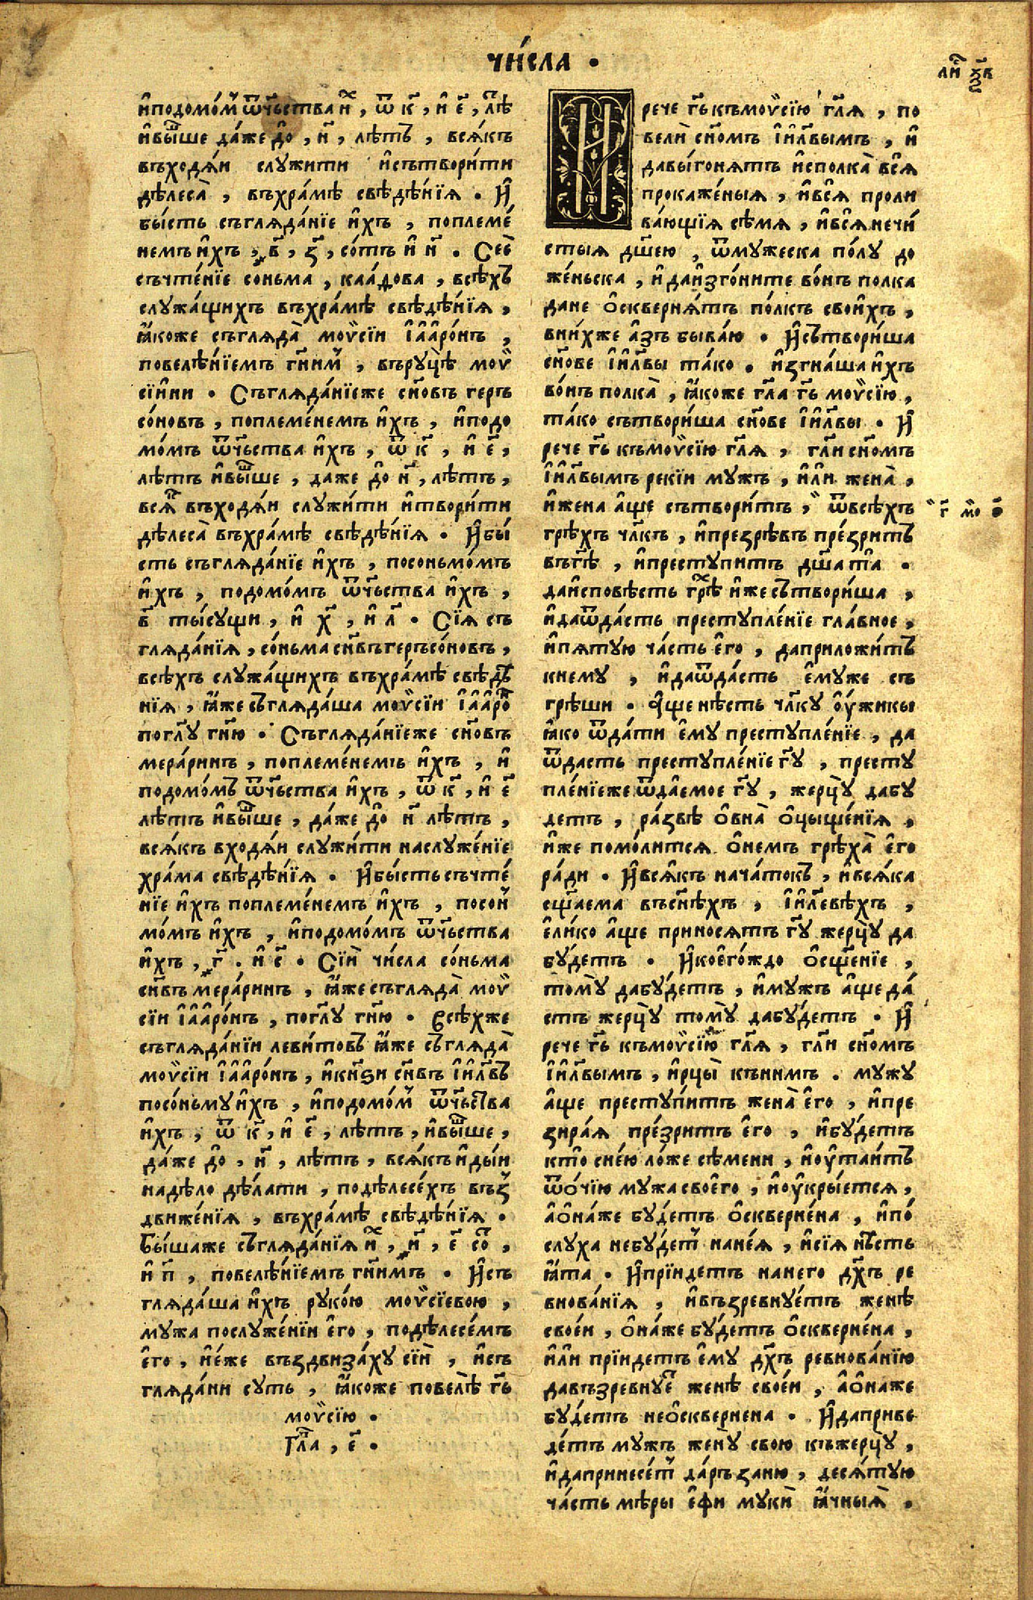 чи́сла .
ли́ст чв
и҆подомо́мъ ѿче́ства и҆́х , ѿ к҃ , и҆ е҃ , лѣ
и҆вы́ше да́же до̀ , н҃ , лѣ́тъ , всѧ́къ
въходѧ́и слꙋжи́ти и҆сътвори́ти
дѣ́леса̀ , въхра́мѣ свѣдѣ́нїѧ . И҆
бы́сть съглѧда́нїе и҆́хъ , поплеме́
немъ и҆́хъ , в҃ , ѱ҃ , со́тъ и҆ н҃ . Сеѐ
съчте́нїе со́ньма , каа́дова , всѣ́хъ
слꙋжа́щихъ въхра́мѣ свѣдѣ́нїѧ ,
ꙗ҆́коже съглѧда̀ моѷсїи і҆а҆аро́нъ ,
повелѣ́нїемъ гн҃имъ , върꙋцѣ̀ моѷ
сїи́ни . Съглѧда́нїеже сн҃о́въ геръ
со́новъ , поплеме́немъ и҆́хъ , и҆подо
мо́мъ ѿче́ства и҆́хъ , ѿ к҃ , и҆ е҃ ,
лѣ́тъ и҆вы́ше , даже до̀ н҃ , лѣ́тъ ,
всѧ́къ въходѧ́и слꙋжи́ти и҆твори́ти
дѣ́леса̀ въхра́мѣ свѣдѣ́нїѧ . И҆бы́
сть съглѧда́нїе и҆́хъ , посоньмо́мъ
и҆́хъ , подомо́мъ ѿче́ства и҆́хъ ,
в҃ ты́сѹщи , и҆ х҃ , и҆ л҃ . Сїѧ съ
глѧда́нїѧ , со́ньма сн҃въ герьсо́новъ ,
всѣ́хъ слꙋжа́щихъ въхра́мѣ свѣдѣ́
нїѧ , ꙗ҆́же съглѧда́ша моѷсїи і҆а҆аро́н
погл҃ꙋ гн҃ю . Съглѧда́нїеже сн҃о́въ
мера́ринъ , поплеме́немъ и҆́хъ , и҆
подомо́мъ ѿче́ства и҆́хъ , ѿ к҃ , и҆ е҃
лѣ́тъ и҆вы́ше , да́же до̀ н҃ лѣ́тъ ,
всѧ́къ входѧ́и слꙋжи́ти наслꙋже́нїе
хра́ма свѣдѣ́нїѧ . И҆бы́сть съчте́
нїе и҆́хъ поплеме́немъ и҆́хъ , посон
мо́мъ и҆́хъ , и҆подомо́мъ ѿче́ства
и҆́хъ , г҃ . и҆ с҃ . Сїѝ чи́сла со́ньма
сн҃въ мера́ринъ , ꙗ҆́же съглѧда̀ моѷ
сїи і҆а҆аро́нъ , погл҃ꙋ гн҃ю . Всѣ́хже
съглѧда́нїи леви́товъ ꙗ҆́же съглѧда̀
моѷсїи і҆а҆аро́нъ , и҆кнѧ́ѕи сн҃въ і҆и҃лвъ
посо́ньмꙋ и҆́хъ , и҆подомо́мъ ѿче́ства
и҆́хъ , ѿ к҃ , и҆ е҃ , лѣ́тъ , и҆вы́ше ,
да́же до̀ , н҃ , лѣ́тъ , всѧ́къ и҆ды́и
надѣ́ло дѣ́лати , подѣлесе́хъ въз
движе́нїѧ , въхра́мѣ свѣдѣ́нїѧ .
Бы́шаже съглѧда́нїѧ и҆́х , н҃ , е҃ со́т ,
и҆ п҃ , повелѣ́нїемъ гн҃имъ . И҆съ
глѧда́ша и҆́хъ рꙋко́ю моѷсїевою ,
мꙋжа послꙋже́нїи е҆го , подѣлесе́мъ
е҆го , и҆е́же въздвиза́хꙋ сїѝ , и҆съ
глѧда́ни сꙋть , ꙗ҆́коже повелѣ̀ гь҃
моѷсїю .
Гла , е҃ .
И рече гь҃ къмоѷсїю гл҃ѧ , по
велѝ сн҃омъ і҆и҃лвымъ , и҆
давы́гонѧтъ и҆сполка̀ всѧ̀
прокаже́ныѧ , и҆всѧ̀ проли
ва́ющїѧ сѣ́мѧ , и҆всѧ̀ нечи́
стыѧ дш҃ею , ѿмꙋжеска по́лꙋ до
же́ньска , и҆ даи҆зго́ните во́нъ полка
дане ѡ҆сквернѧ́тъ по́лкъ свои́хъ ,
вни́хже а҆́зъ быва́ю . И҆сътвори́ша
сн҃ове і҆и҃лвы та́ко . и҆згна́ша и҆́хъ
во́нъ полка̀ , ꙗ҆́коже гл҃а гь҃ моѷсїю ,
та́ко сътвори́ша сн҃ове і҆и҃лвы . И҆
рече гь҃ къмоѷсїю гл҃ѧ , гл҃и сн҃омъ
і҆и҃лвымъ рекїи мꙋжъ , и҆лѝ жена̀ ,
и҆жена а҆́ще сътвори́тъ , ѿвсѣ́хъ
грѣ́хъ чл҃къ , и҆презрѣ́въ пре́зритъ
въг҃ѣ , и҆престꙋпитъ дш҃а та .
даи҆сповѣ́сть грѣ́х и҆же сътвори́ша ,
и҆даѿда́сть престꙋпле́нїе гла́вное ,
и҆пѧ́тꙋю ча́сть е҆го , даприложи́тъ
кнемꙋ , и҆даѿда́сть е҆мꙋже съ
грѣ́ши . А҆́ще нѣ́сть чл҃кꙋ ѹ҆́жикы
ꙗ҆́ко ѿда́ти е҆мꙋ престꙋпле́нїе , да
ѿдасть престꙋпле́нїе гꙋ҃ , престꙋ
пле́нїеже ѿдае́мое гꙋ҃ , жерцꙋ̀ дабꙋ
детъ , ра́звѣ ѻ҆вна̀ ѻ҆цыще́нїѧ ,
и҆́же помо́литсѧ ѻ҆немъ грѣха̀ е҆го
ра́ди . И҆всѧ́къ нача́токъ , и҆всѧ́ка
сщ҃аема въсн҃ѣхъ , і҆и҃левѣхъ ,
е҆ли́ко а҆́ще прино́сѧтъ гꙋ҃ жерцꙋ̀ да
бꙋ́детъ . И҆коего́ждо ѻ҆сщ҃е́нїе ,
томꙋ̀ дабꙋ́детъ , и҆мꙋ́жъ а҆́ще да́
стъ жерцꙋ̀ томꙋ̀ дабꙋ́детъ . И҆
рече гь҃ къмоѷсїю гл҃ѧ , гл҃и сн҃омъ
і҆и҃лвымъ , и҆рцы̀ кънимъ . мꙋжꙋ
а҆ще престꙋ́питъ жена̀ е҆го , и҆пре
зира́ѧ пре́зритъ е҆го , и҆бꙋ́детъ
кто̀ сне́ю ло́же сѣ́мени , и҆ѹ҆таи́тъ
ѿо́чїю мꙋжа своего , и҆ѹ҆кры́етсѧ ,
а҆ѻ҆на́же бꙋ́детъ ѻ҆скверне́на , и҆по́
слꙋха небꙋ́детъ нане́ѧ , и҆сїѧ нѣ́сть
ꙗ҆́та . И҆прїи́детъ нанего дх҃ъ ре
внова́нїѧ , и҆възревнꙋ́етъ женѣ
свое́и , ѻ҆на́же бꙋ́детъ ѻ҆скверне́на ,
и҆ли прїи́детъ е҆мꙋ дх҃ъ ревнова́нїю
давъзревнꙋе́ женѣ̀ свое́и , а҆ѻ҆на́же
бꙋ́детъ неѻ҆сквернена . И҆даприве
де́тъ мꙋ́жъ женꙋ̀ свою къжерцꙋ̀ ,
и҆дапринесе́тъ да́ръ заню , десѧ́тꙋю
ча́сть мѣ́ры е҆фи мꙋкѝ ꙗ҆́чныѧ̀ .